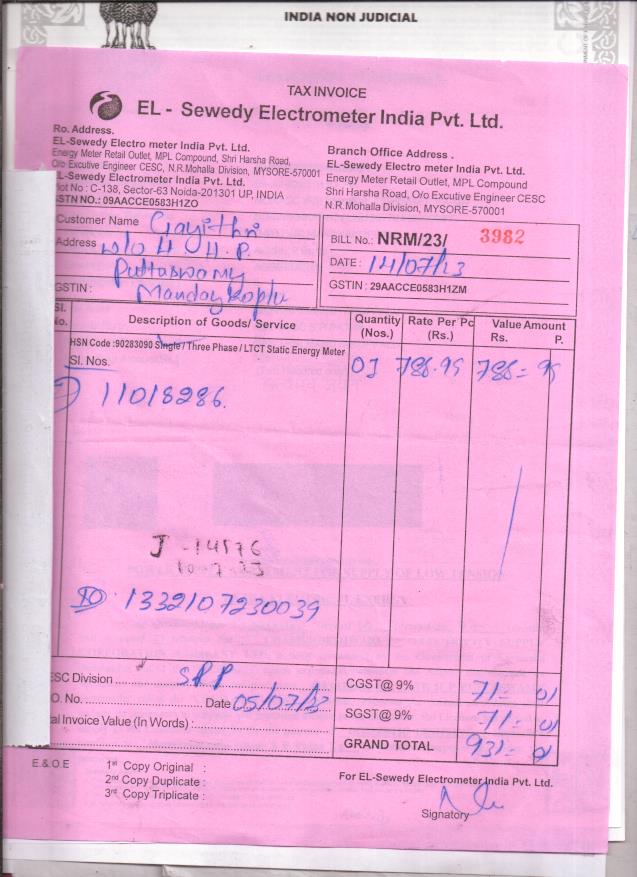 INDIA NON JUDICIAL
TAX INVOICE
EL - Sewedy Electrometer India Pvt. Ltd.
Ro. Address.
EL-Sewedy Electro meter India Pvt. Ltd.
Energy Meter Retail Outlet, MPL Compound, Shri Harsha Road,
O/o Excutive Engineer CESC, N.R.Mohalla Division, MYSORE-570001
EL-Sewedy Electrometer India Pvt. Ltd.
Plot No : C-138, Sector-63 Noida-201301 UP, INDIA
GSTN NO.: 09AACCE0583H1ZO
Branch Office Address .
EL-Sewedy Electro meter India Pvt. Ltd.
Energy Meter Retail Outlet, MPL Compound
Shri Harsha Road, O/o Excutive Engineer CESC
N.R.Mohalla Division, MYSORE-570001
Customer Name Gayithri
Address w/o H. H. P.
Puttaswamy
GSTIN : Mandaykoplu
BILL No.: NRM/23/ 3982
DATE : 14/07/23
GSTIN : 29AACCE0583H1ZM
Sl. No. Description of Goods/ Service Quantity (Nos.) Rate Per Pc (Rs.) Value Amount Rs. P.
HSN Code :90283090 Single / Three Phase / LTCT Static Energy Meter
Sl. Nos. 01 788.99 788=99
11018286.
J - 14576
10 7 23
IO. 1332107230039
ESC Division SPP
O. No. Date 05/07/23
al Invoice Value (In Words) :
CGST@ 9% 71=01
SGST@ 9% 71=01
GRAND TOTAL 931=01
E.& O.E
1st Copy Original :
2nd Copy Duplicate :
3rd Copy Triplicate :
For EL-Sewedy Electrometer India Pvt. Ltd.
Signatory